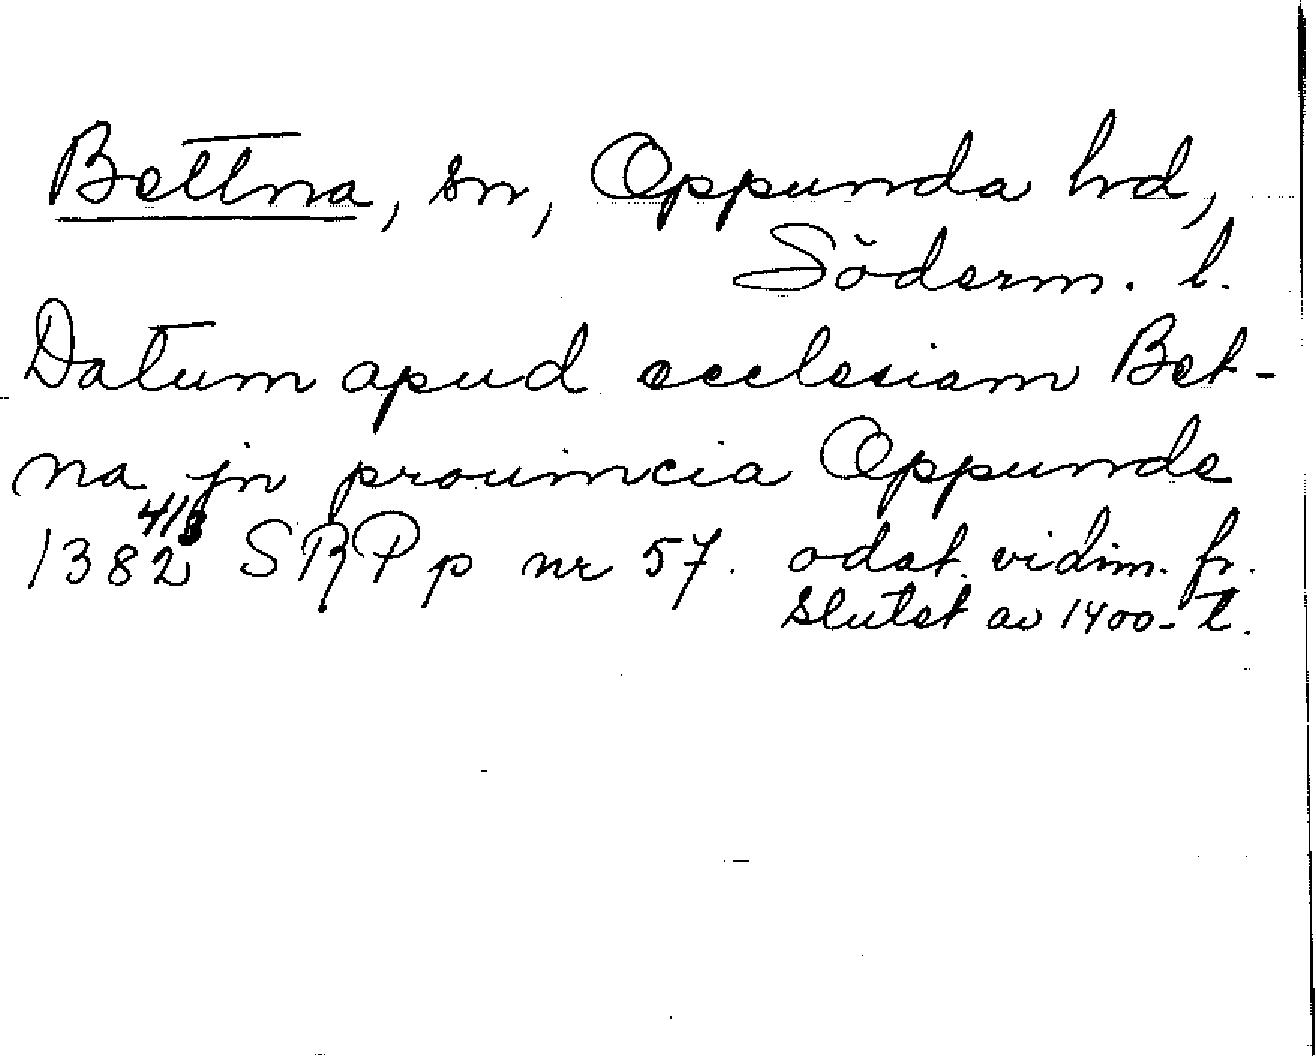 Bettna, sn, Oppunda hrd,
Söderm. l.
Datum apud ecclesiam Bet-
na jn prouincia Oppunde
4/3
1382 SRPp nr 57. odat. vidim. fr.
slutet av 1400-t.